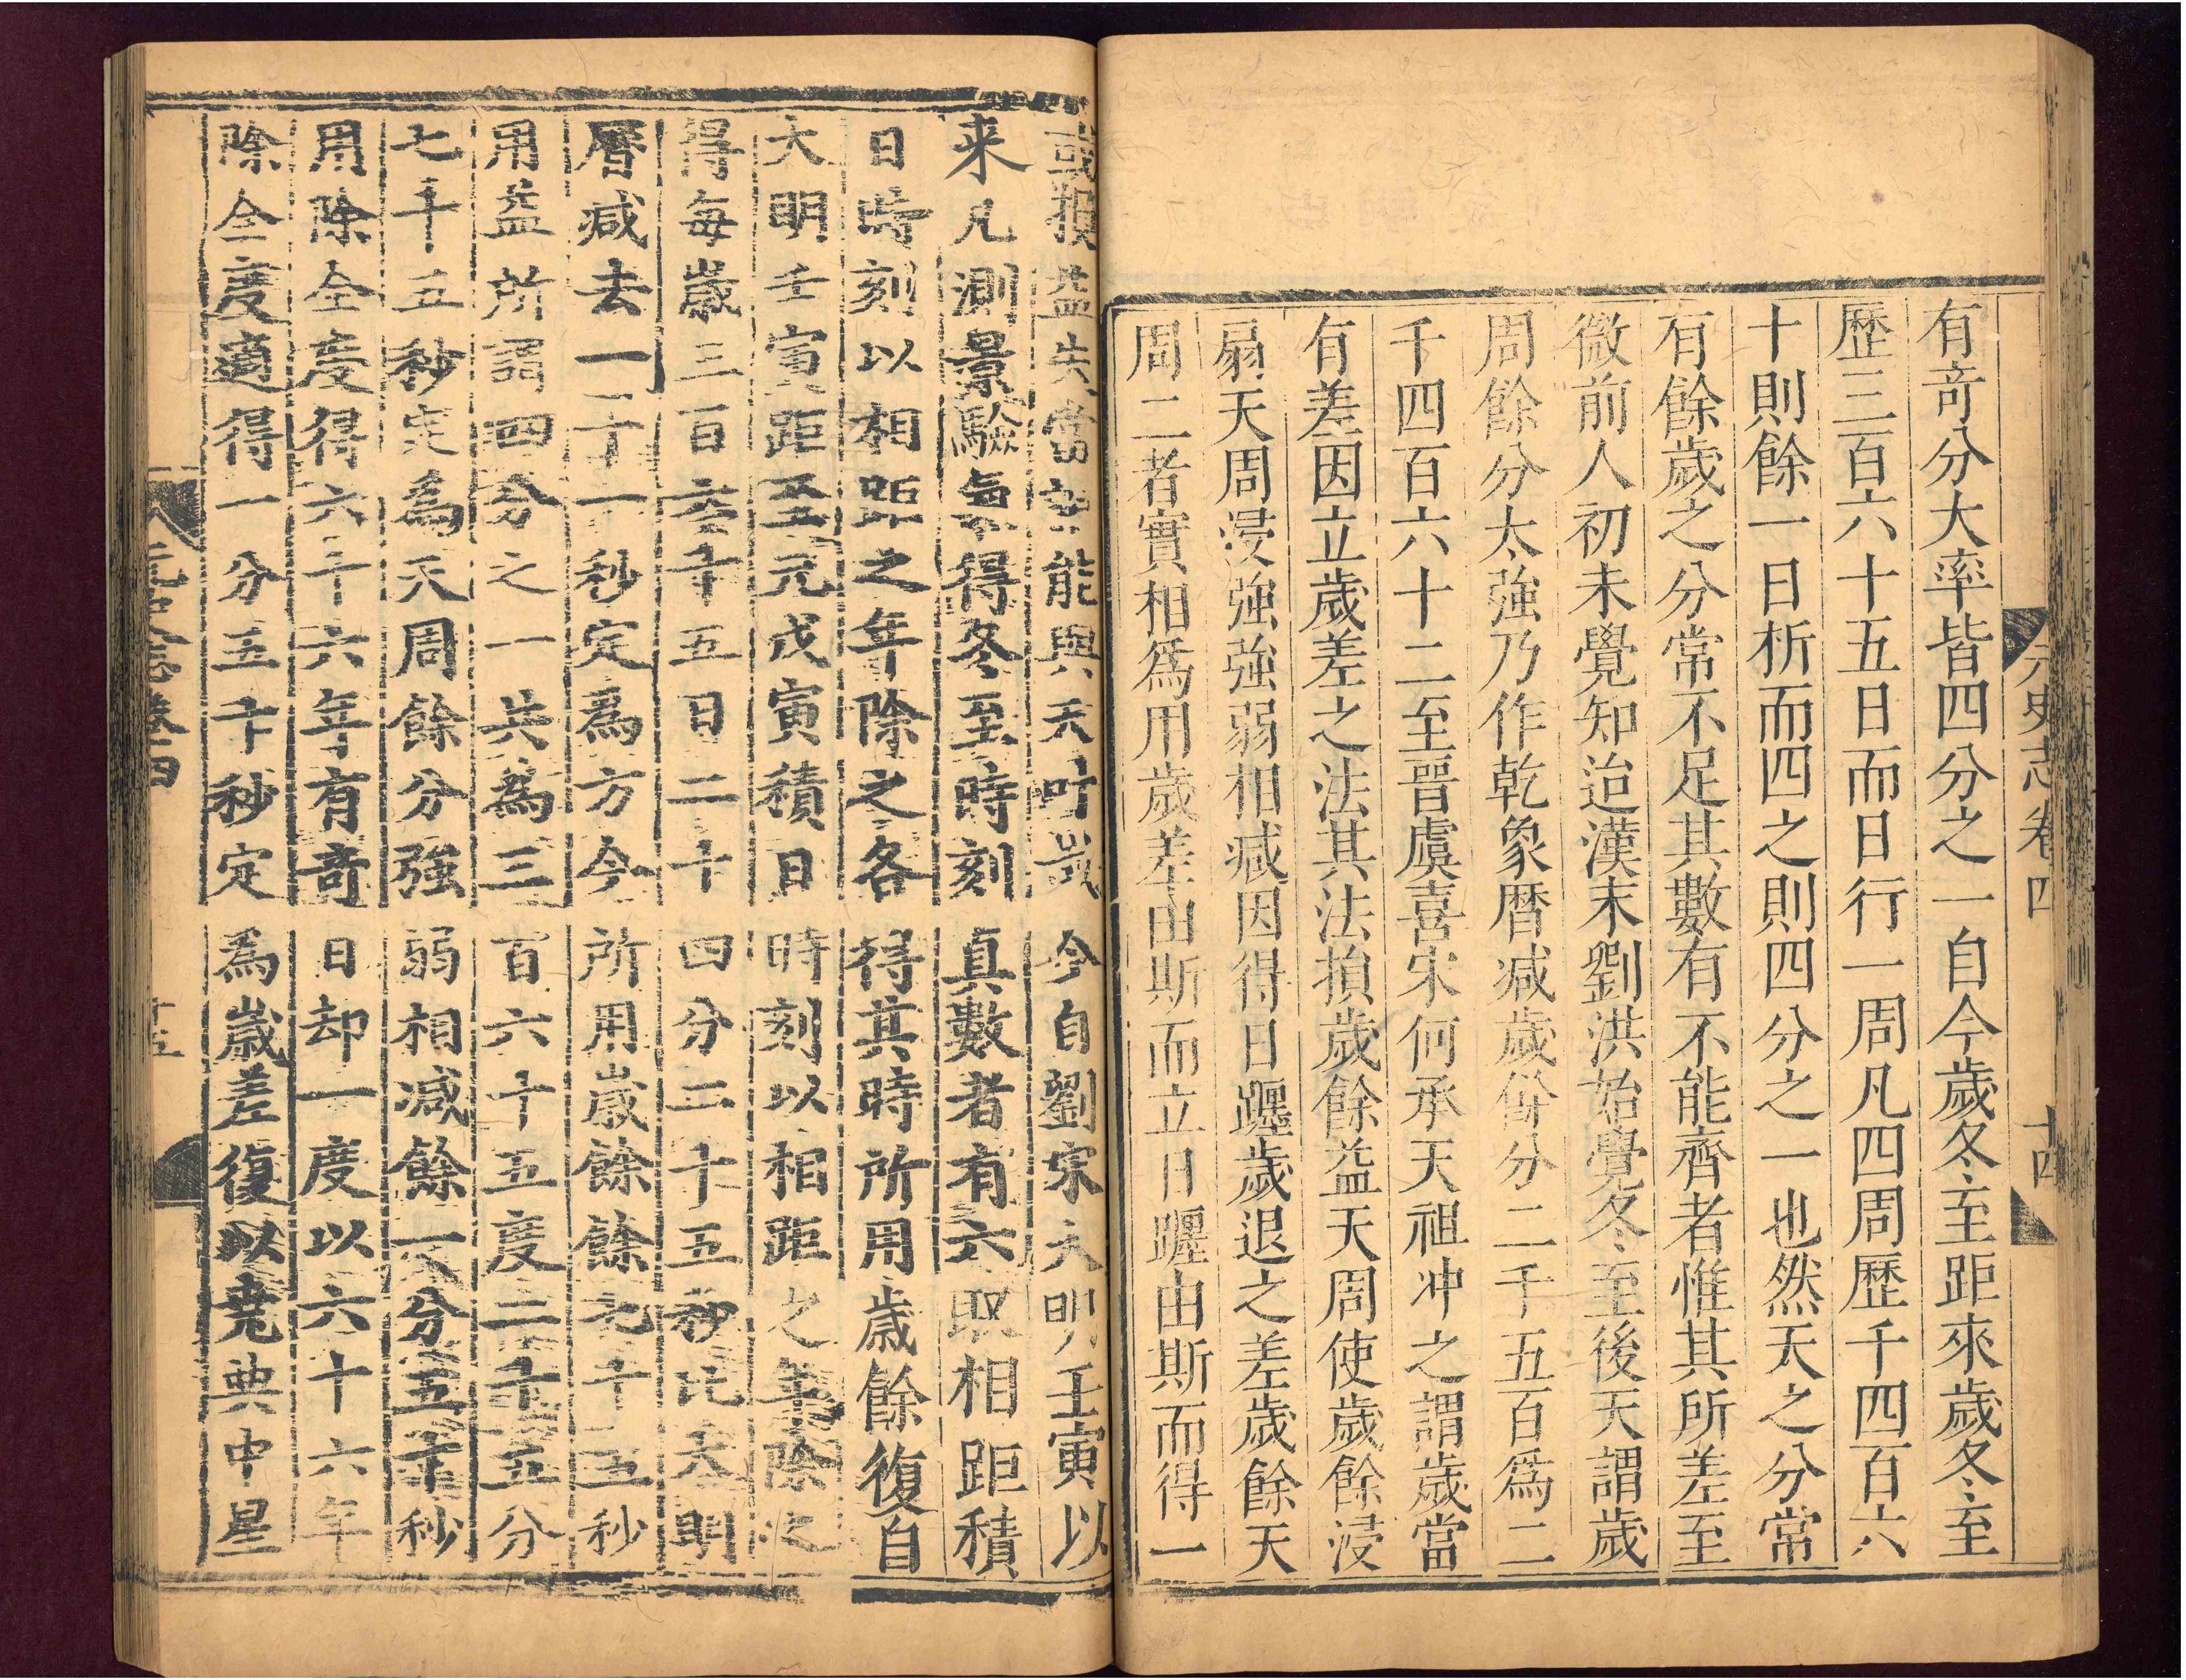 元史志卷四 十四
有奇分大率皆四分之一自今歲冬至距來歲冬至
歷三百六十五日而日行一周凡四周歷千四百六
十則餘一日析而四之則四分之一也然天之分常
有餘歲之分常不足其數有不能齊者惟其所差至
微前人初未覺知迨漢末劉洪始覺冬至後天謂歲
周餘分太強乃作乾象曆減歲餘分二千五百爲二
千四百六十二至晉虞喜宋何承天祖冲之謂歲當
有差因立歲差之法其法損歲餘益天周使歲餘浸
弱天周浸強強弱相減因得日躔歲退之差歲餘天
周二者實相爲用歲差由斯而立日躔由斯而得一
或損益失當詎能與天叶哉今自劉宋大明壬寅以
来凡測景驗氣得冬至時刻真數者有六取相距積
日時刻以相距之年除之各得其時所用歲餘復自
大明壬寅距至元戊寅積日時刻以相距之年除之
得每歲三百六十五日二十四分二十五秒比大明
曆減去一十一秒定爲方今所用歲餘餘七十五秒
用益所謂四分之一共爲三百六十五度二十五分
七十五秒定爲天周餘分強弱相減餘一分五十秒
用除全度得六十六年有奇日却一度以六十六年
除全度適得一分五十秒定爲歲差復以堯典中星
元史志卷四 十五